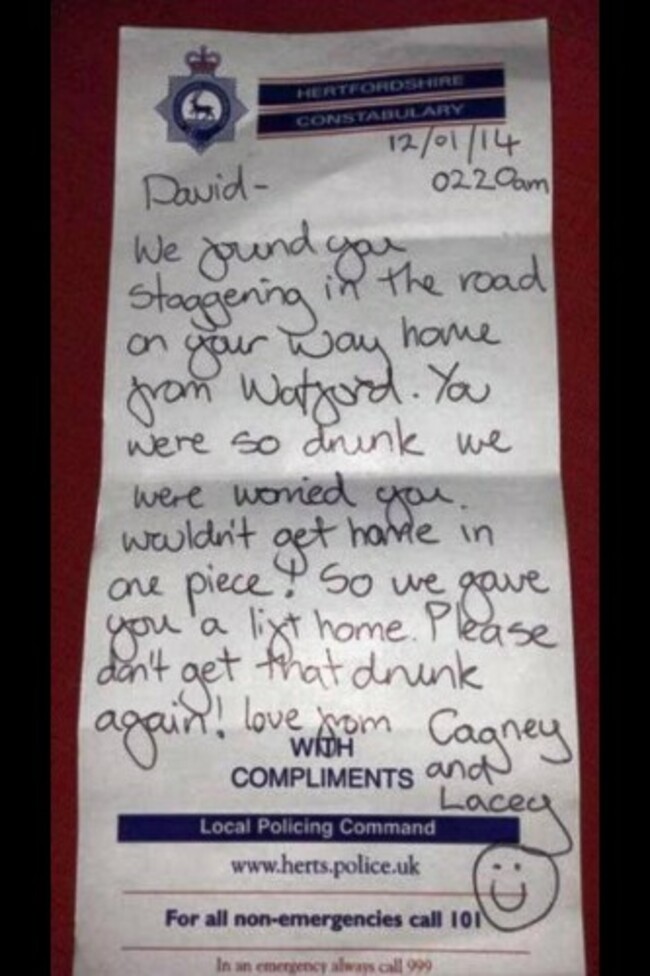 HERTFORDSHIRE
CONSTABULARY
12/01/14
0220am
David-
We found you
staggering in the road
on your way home
from Watford. You
were so drunk we
were worried you
wouldn't get home in
one piece! So we gave
you a lift home. Please
don't get that drunk
again! love from Cagney
and
Lacey
WITH
COMPLIMENTS
Local Policing Command
www.herts.police.uk
For all non-emergencies call 101
In an emergency always call 999